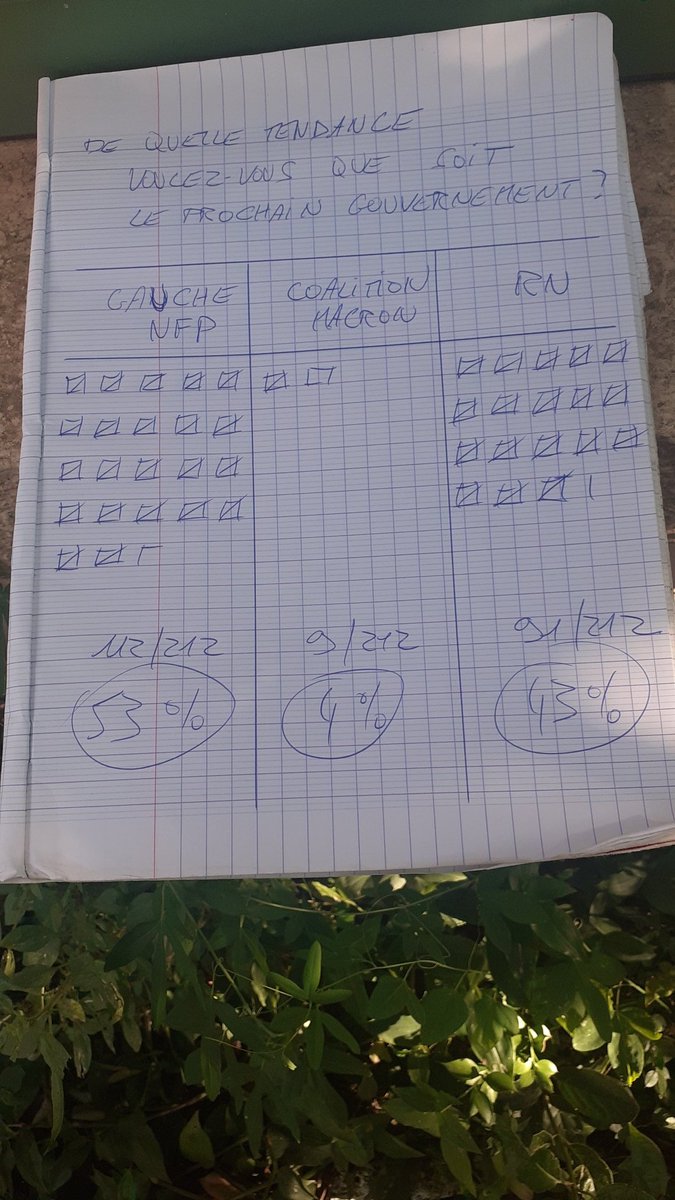 DE QUELLE TENDANCE
VOULEZ-VOUS QUE SOIT
LE PROCHAIN GOUVERNEMENT ?
GAUCHE
NFP
COALITION
MACRON
RN
112/212
9/212
91/212
53 %
4 %
43 %